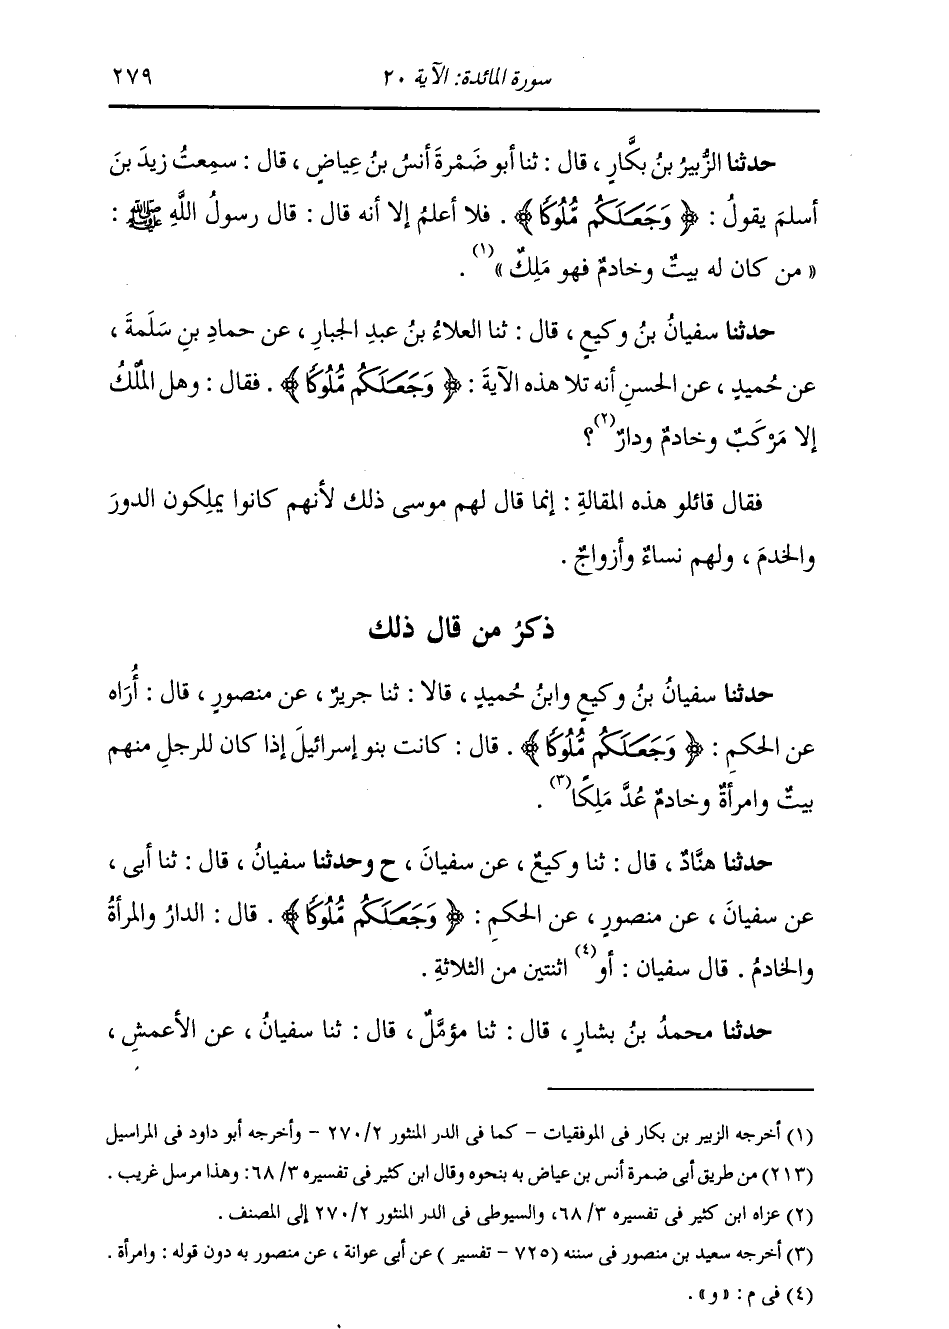 سورة المائدة: الآية ٢٠ ٢٧٩
حدثنا الزُّبيرُ بنُ بكَّارٍ ، قال : ثنا أبو ضَمْرةَ أنسُ بنُ عِياضٍ ، قال : سمِعتُ زيدَ بنَ
أسلمَ يقولُ : ﴿ وَجَعَلَكُم مُّلُوكًا ﴾ . فلا أعلمُ إلا أنه قال : قال رسولُ اللَّهِ ﷺ :
« من كان له بيتٌ وخادمٌ فهو مَلِكٌ »(١) .
حدثنا سفيانُ بنُ وكيعٍ ، قال : ثنا العلاءُ بنُ عبدِ الجبارِ ، عن حمادِ بنِ سَلَمةَ ،
عن حُميدٍ ، عن الحسنِ أنه تلا هذه الآيةَ : ﴿ وَجَعَلَكُم مُّلُوكًا ﴾ . فقال : وهل المُلْكُ
إلا مَرْكَبٌ وخادمٌ ودارٌ(٢) ؟
فقال قائلو هذه المقالةِ : إنما قال لهم موسى ذلك لأنهم كانوا يملِكون الدورَ
والخدمَ ، ولهم نساءٌ وأزواجٌ .
ذكرُ من قال ذلك
حدثنا سفيانُ بنُ وكيعٍ وابنُ حُميدٍ ، قالا : ثنا جريرٌ ، عن منصورٍ ، قال : أُرَاه
عن الحكمِ : ﴿ وَجَعَلَكُم مُّلُوكًا ﴾ . قال : كانت بنو إسرائيلَ إذا كان للرجلِ منهم
بيتٌ وامرأةٌ وخادمٌ عُدَّ مَلِكًا(٣) .
حدثنا هنَّادٌ ، قال : ثنا وكيعٌ ، عن سفيانَ ، ح وحدثنا سفيانُ ، قال : ثنا أبى ،
عن سفيانَ ، عن منصورٍ ، عن الحكمِ : ﴿ وَجَعَلَكُم مُّلُوكًا ﴾ . قال : الدارُ والمرأةُ
والخادمُ . قال سفيان : أو(٤) اثنتين من الثلاثةِ .
حدثنا محمدُ بنُ بشارٍ ، قال : ثنا مؤمَّلٌ ، قال : ثنا سفيانُ ، عن الأعمشِ ،
(١) أخرجه الزبير بن بكار فى الموفقيات - كما فى الدر المنثور ٢/ ٢٧٠ - وأخرجه أبو داود فى المراسيل
(٢١٣) من طريق أبى ضمرة أنس بن عياض به بنحوه وقال ابن كثير فى تفسيره ٣/ ٦٨: وهذا مرسل غريب .
(٢) عزاه ابن كثير فى تفسيره ٣/ ٦٨، والسيوطى فى الدر المنثور ٢/ ٢٧٠ إلى المصنف .
(٣) أخرجه سعيد بن منصور فى سننه (٧٢٥ - تفسير ) عن أبى عوانة ، عن منصور به دون قوله : وامرأة .
(٤) فى م : « و» .